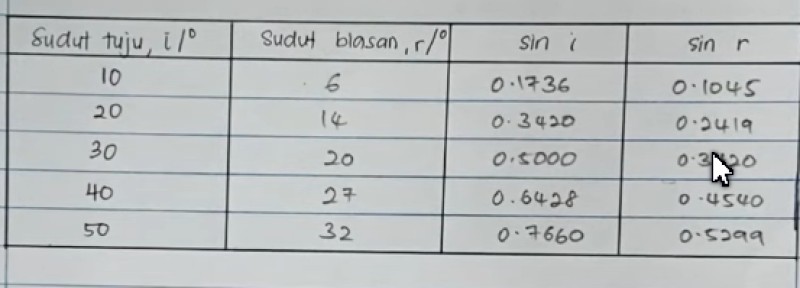 Sudut tuju, i/° Sudut biasan, r/° sin i sin r
10 6 0.1736 0.1045
20 14 0.3420 0.2419
30 20 0.5000
40 27 0.6428 0.4540
50 32 0.7660 0.5299